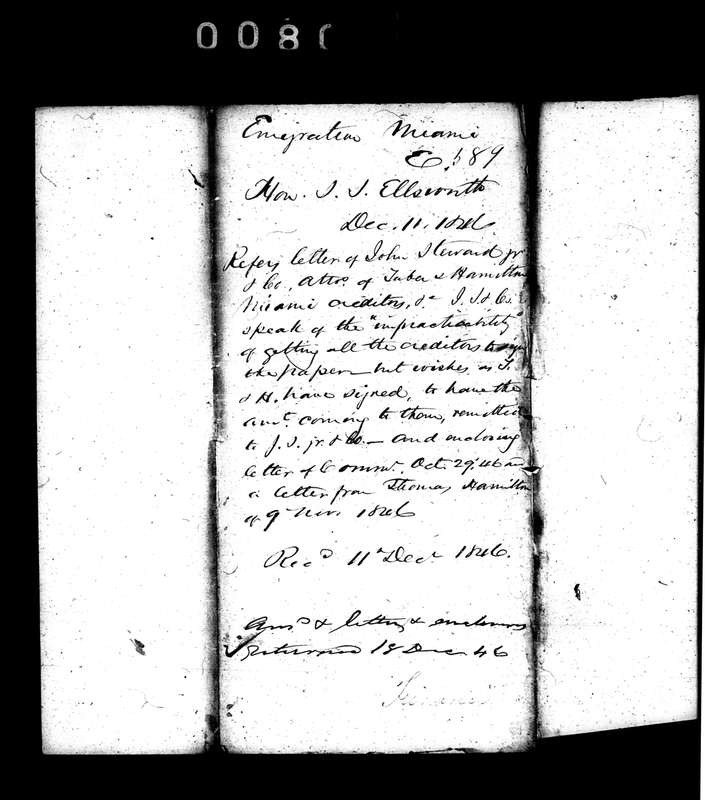 008
Emigration Miami
E. 589
Hon. J. J. Ellsworth
Dec. 11, 1846.
Refers letter of John Steward jr
& Co., Attos. of Taber & Hamilton
Miami creditors, &c J. S. & Co.
speak of the "impracticability"
of getting all the creditors to sign
the paper— but wishes, as T.
& H. have signed, to have the
amt. coming to them, remitted
to J. S. jr. & Co.— and enclosing
letter of Commr. Oct. 29, '46 and
a letter from Thomas Hamilton
of 9 Nov. 1846
Recd 11 Decr 1846.
Ansd & letters & enclosures
returned 18 Dec 46